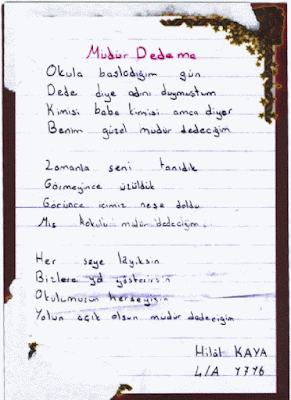 Müdür Dedeme
Okula başladığım gün
Dede diye adını duymuştum
Kimisi baba kimisi amca diyor
Benim güzel müdür dedeciğim
Zamanla seni tanıdık
Görmeyince üzüldük
Görünce içimiz neşe doldu
Mis kokulu müdür dedeciğim
Her şeye layıksın
Bizlere yol gösterirsin
Okulumuzun herşeyisin
Yolun açık olsun müdür dedeciğim
Hilâl KAYA
4/A 1776